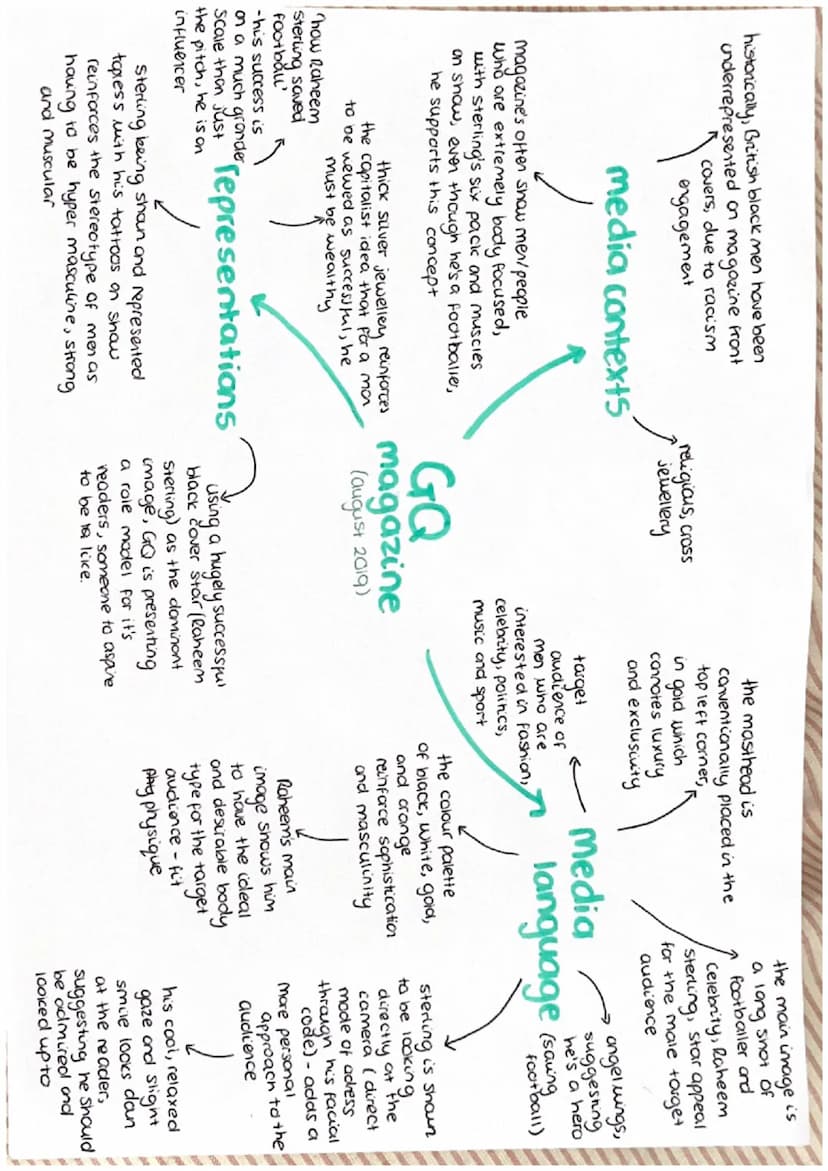 GQ
magazine
(august 2019)
media contexts
historically, British black men have been
underrepresented on magazine front
covers, due to racism
engagement
religious, cross
jewellery
magazine's often show men/people
who are extremely body focused,
with sterling's six pack and muscles
on show, even though he's a footballer,
he supports this concept
representations
'how Raheem
sterling saved
football'
-his success is
on a much grander
scale than just
the pitch, he is an
influencer
thick silver jewellery reinforces
the capitalist idea that for a man
to be viewed as successful, he
must be wealthy
sterling being shown and represented
topless with his tattoos on show
reinforces the stereotype of men as
having to be hyper masculine, strong
and muscular
using a hugely successful
black cover star (Raheem
sterling) as the dominant
image, GQ is presenting
a role model for it's
readers, someone to aspire
to be like.
Media
language
the masthead is
conventionally placed in the
top left corner,
in gold which
connotes luxury
and exclusivity
the main image is
a long shot of
footballer and
celebrity, Raheem
sterling, star appeal
for the male target
audience
target
audience of
men who are
interested in fashion,
celebrity, politics,
music and sport
the colour palette
of black, white, gold,
and orange
reinforce sophistication
and masculinity
Raheem's main
image shows him
to have the ideal
and desirable body
type for the target
audience - fit
physique
angel wings,
suggesting
he's a hero
(saving
football)
sterling is shown
to be looking
directly at the
camera (direct
mode of adress
through his facial
code) - adds a
more personal
approach to the
audience
his cool, relaxed
gaze and slight
smile looks down
at the reader,
suggesting he should
be admired and
looked up to